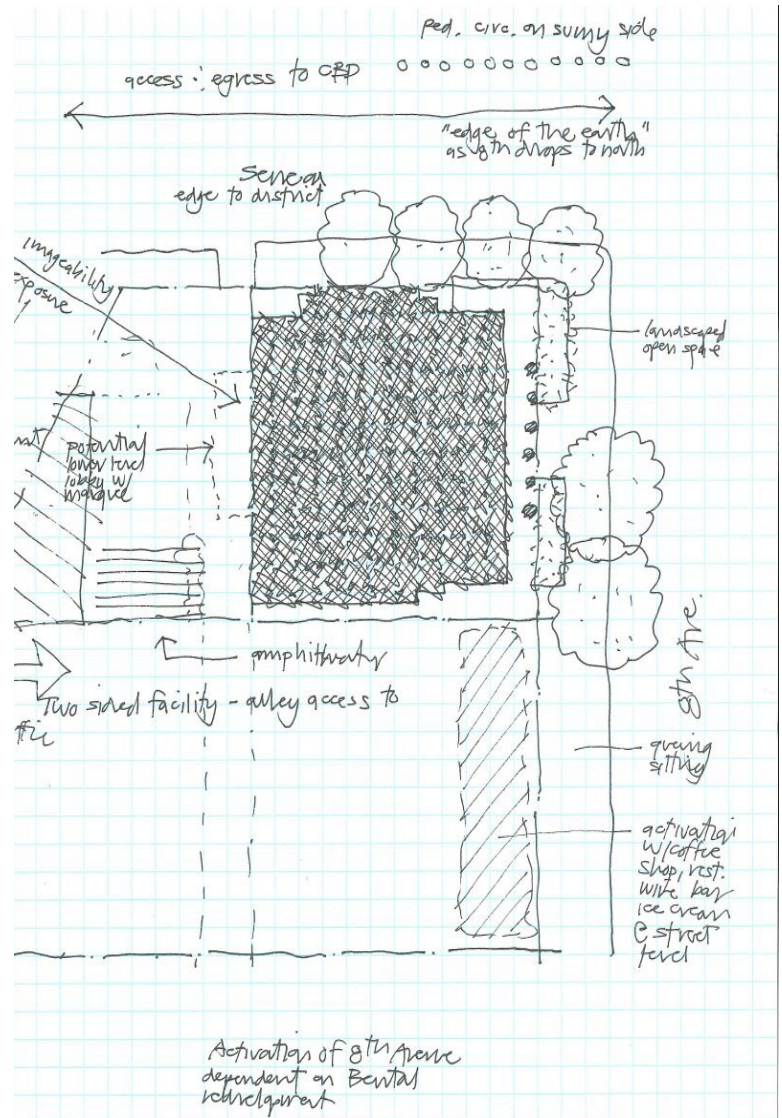 ped. circ. on sunny side
access : egress to CBD
"edge of the earth"
as 8th drops to north
Seneca
edge to district
imageability
exposure
landscaped
open space
potential
lower level
lobby w/
marquee
amphitheater
8th Ave.
Two sided facility - alley access to
queing
sitting
activation
w/coffee
shop, rest.
wine bar
ice cream
@ street
level
Activation of 8th Avenue
dependent on Bental
redevelopment